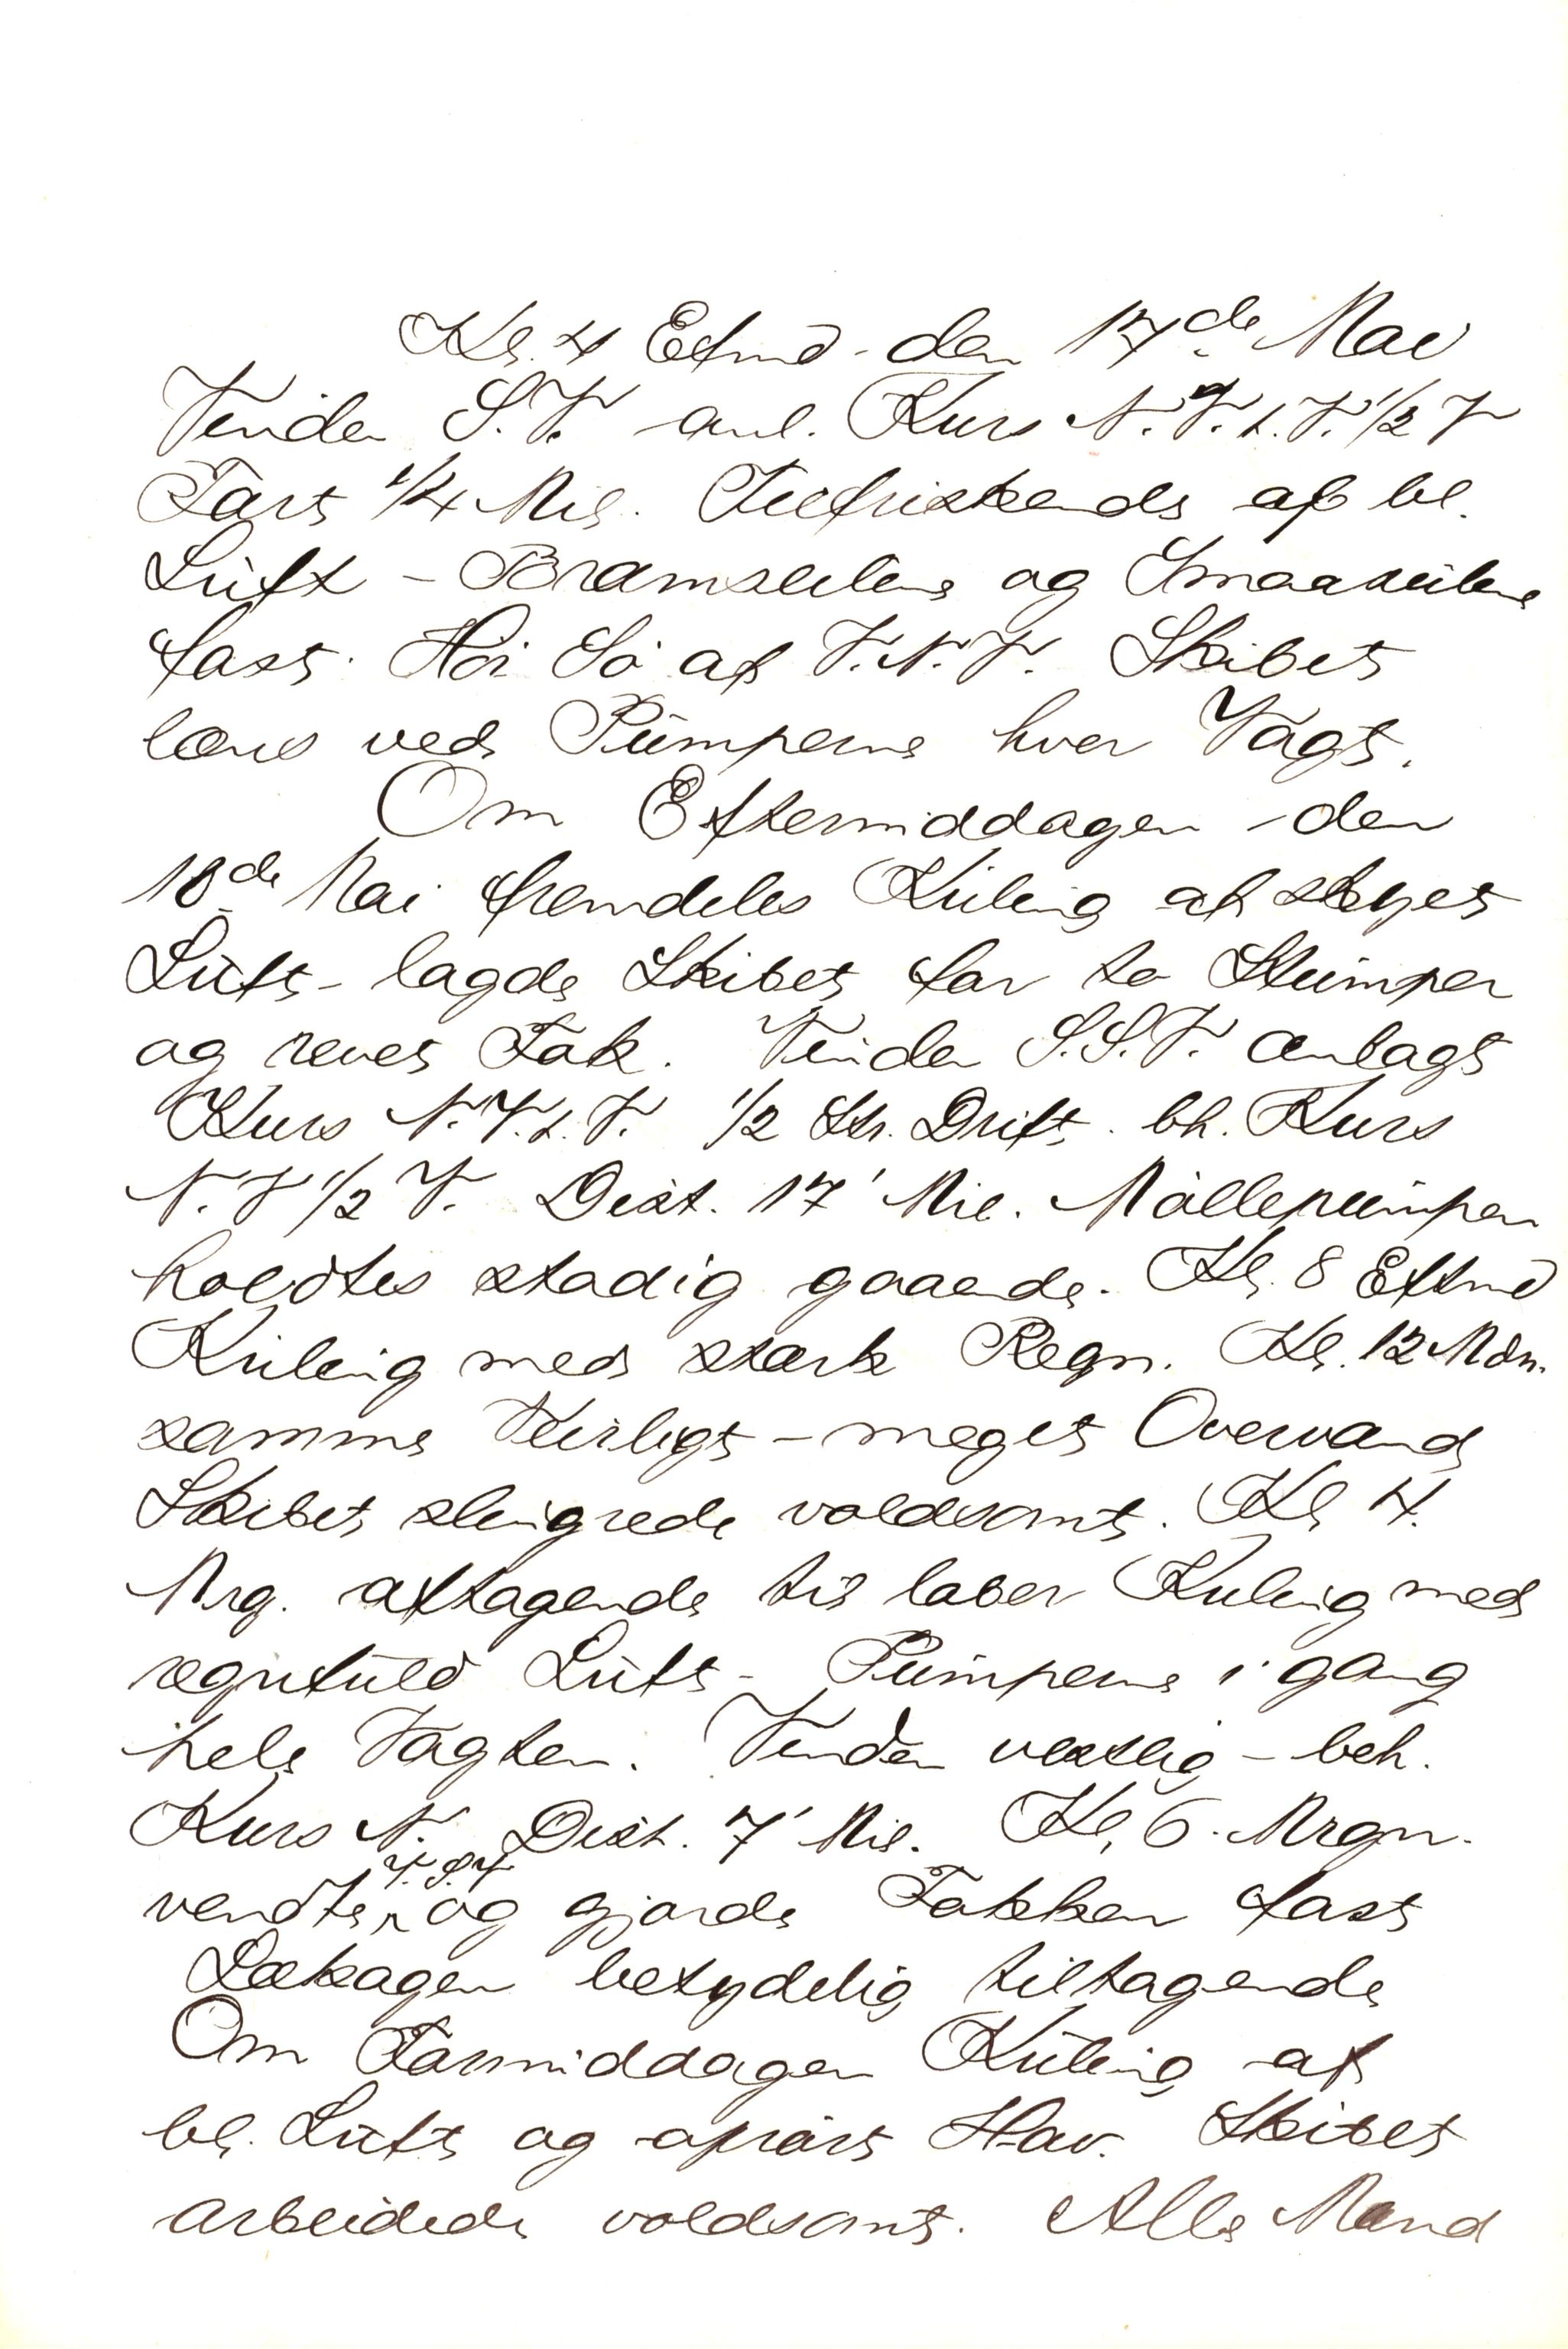 Kl. 4 Eftmd. den 17de Mai
Vinden S.V. anl. Kurs N.V.t.V.1/2 V
Fart 1/4 Mil. Tilfriskende af bl.
Luft - Bramseilene og Smaaseilene
fast. Höi Sö af V.N.V. Skibet
læns ved Pumperne hver Vagt.
Om Eftermiddagen den
18de Mai fremdeles Kuling af skyet
Luft - lagde Skibet for to Stumper
og revet Fok. Vinden S.S.V. anlagt
Kurs N.V.t.V. 1/2 Str. Drift. bh. Kurs
N.V 1/2 V. Dist. 17' Mil. Möllepumpen
holdtes stadig gaaende. Kl. 8 Eftmd
Kuling med stærk Regn. Kl. 12 Mdn.
samme Veirligt - meget Overvand
Skibet slingrede voldsomt. Kl 4.
Mrg. aftagende til laber Kuling med
regnfuld Luft - Pumperne i gang
hele Vagten. Vinden vestlig - beh.
Kurs N. Dist. 7' Mil. Kl. 6. Mrgn.
V.S.V
vendte og gjorde Fokken fast
Lækagen betydelig tiltagende
Om Formiddagen Kuling af
bl. Luft og oprört Hav. Skibet
arbeidede voldsomt. Alle Mand